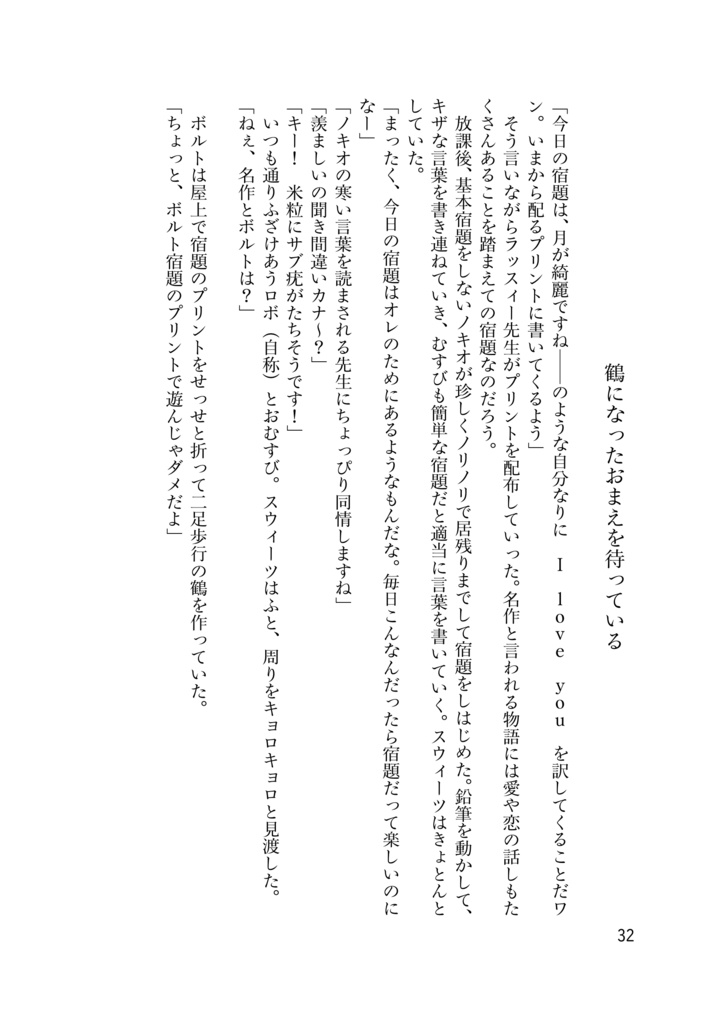 鶴になったおまえを待っている
「今日の宿題は、月が綺麗ですね――のような自分なりに　I love you　を訳してくることだワ
ン。いまから配るプリントに書いてくるよう」
　そう言いながらラッスィー先生がプリントを配布していった。名作と言われる物語には愛や恋の話しもた
くさんあることを踏まえての宿題なのだろう。
　放課後、基本宿題をしないノキオが珍しくノリノリで居残りまでして宿題をしはじめた。鉛筆を動かして、
キザな言葉を書き連ねていき、むすびも簡単な宿題だと適当に言葉を書いていく。スウィーツはきょとんと
していた。
「まったく、今日の宿題はオレのためにあるようなもんだな。毎日こんなんだったら宿題だって楽しいのに
なー」
「ノキオの寒い言葉を読まされる先生にちょっぴり同情しますね」
「羨ましいの聞き間違いカナ～？」
「キー！　米粒にサブ疣がたちそうです！」
　いつも通りふざけあうロボ（自称）とおむすび。スウィーツはふと、周りをキョロキョロと見渡した。
「ねぇ、名作とボルトは？」
　ボルトは屋上で宿題のプリントをせっせと折って二足歩行の鶴を作っていた。
「ちょっと、ボルト宿題のプリントで遊んじゃダメだよ」
32